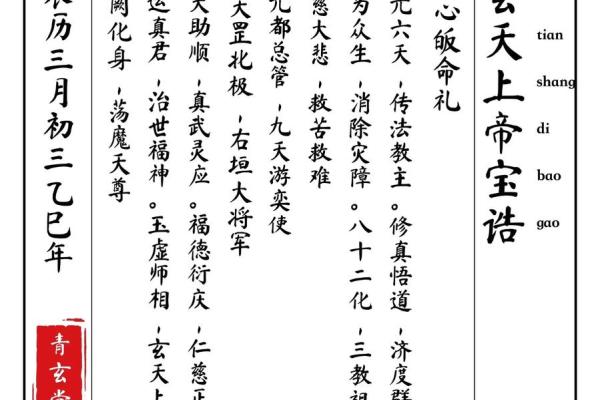 玄天上帝宝诰
tian
shang
di
bao
gao
心皈命礼
元六天，传法教主。修真悟道，济度群
为众生，消除灾障。八十二化，三教祖
慈大悲，救苦救难
元都总管，九天游奕使
天罡北极，右垣大将军
天助顺，真武灵应。福德衍庆，仁慈正
运真君，治世福神。玉虚师相，玄天上
阙化身，荡魔天尊
农历三月初三乙巳年
青玄堂